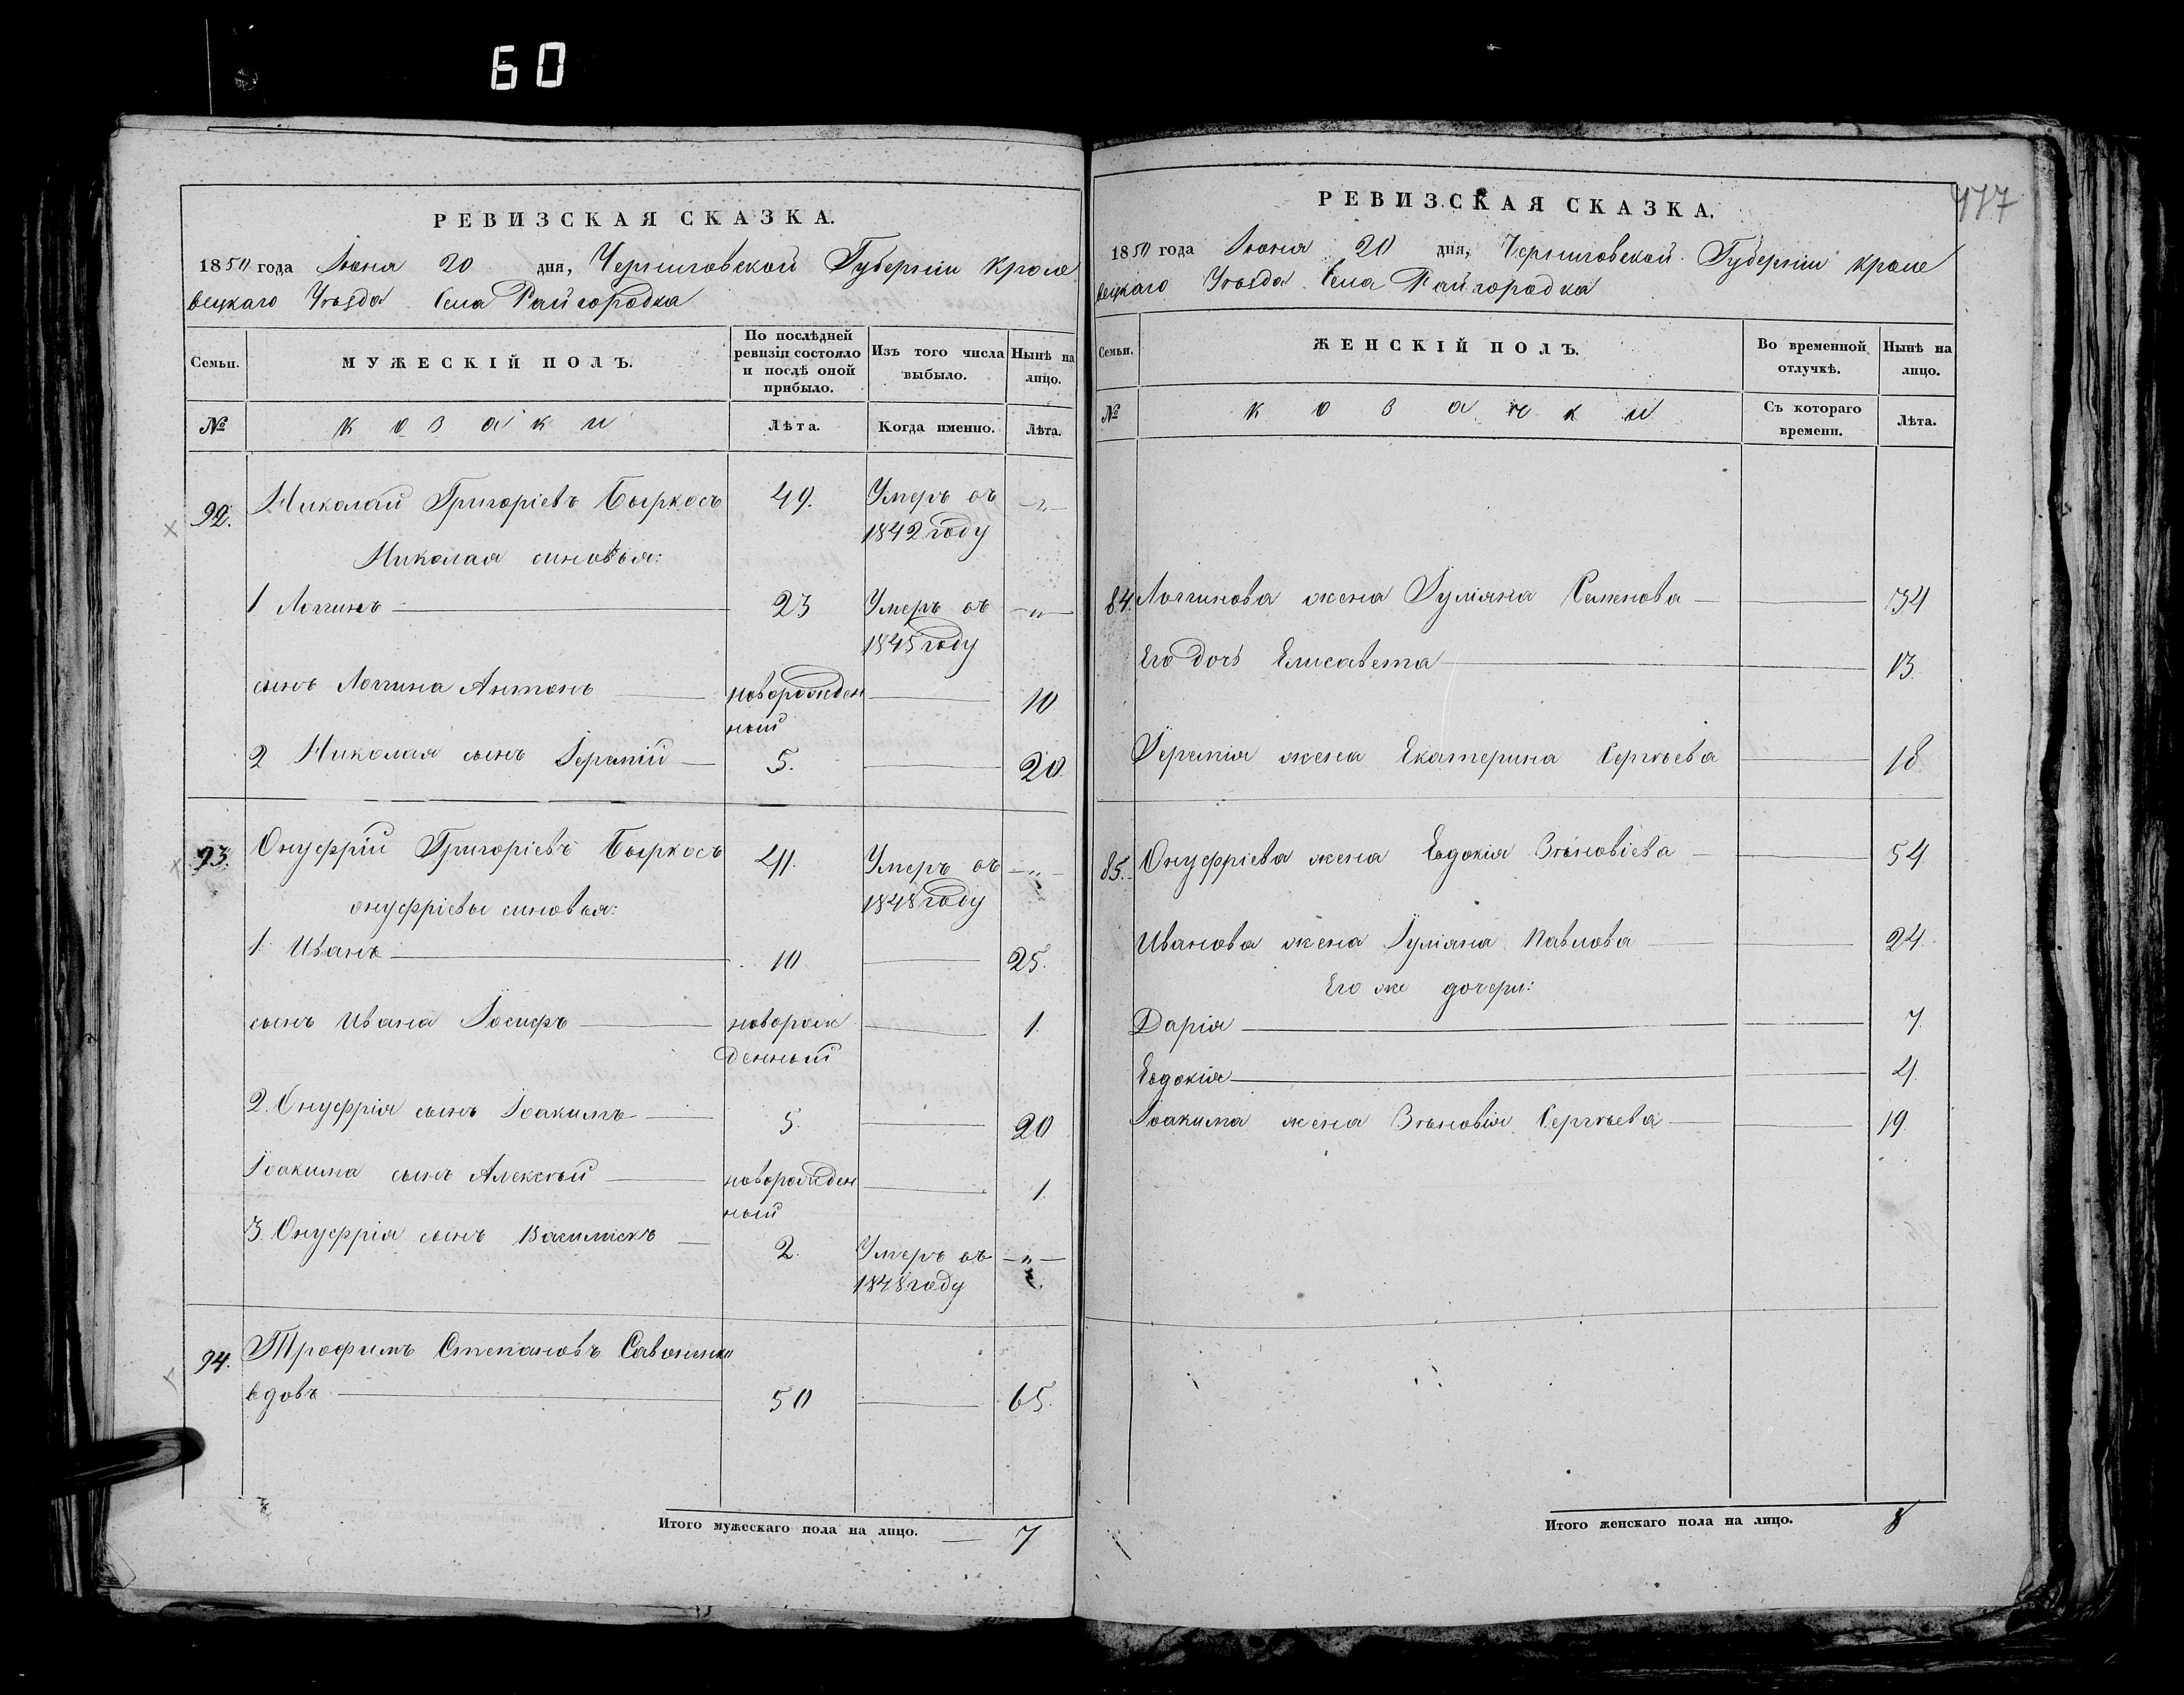 60
РЕВИЗСКАЯ СКАЗКА.
1850 года Июня 20 дня, Черниговской Губерніи Кроле
вецкаго Уѣзда Села Райгородка
Семьи.
МУЖЕСКІЙ ПОЛЪ.
По послѣдней ревизіи состояло и послѣ оной прибыло.
Изъ того числа выбыло.
Нынѣ на лицо.
№
Козаки
Лѣта.
Когда именно.
Лѣта.
92. Николай Григоріевъ Быркосъ 49. Умеръ въ —„—
1842 году
Николая синовья:
1 Логгинъ — 23 Умеръ въ —„—
1845 году
сынъ Логгина Антонъ — новорожден — 10
ный
2 Николая сынъ — 5. — 20.
93. Онуфрій Григоріевъ Быркосъ 41. Умеръ въ —„—
1848 году
онуфріевы синовья:
1. Иванъ — 10 — 25.
сынъ Ивана Іосифъ — новорож — 1.
денный
2. Онуфрія сынъ Іоакимъ — 5. — 20
Іоакима сынъ Алексѣй — новорожден — 1.
ный
3. Онуфрія сынъ Василискъ — 2. Умеръ въ —„—
1848 году
94. Трофимъ Степановъ
вдовъ — 50 — 65.
Итого мужескаго пола на лицо. — 7
477
РЕВИЗСКАЯ СКАЗКА.
1850 года Июня 20 дня, Черниговской Губерніи Кроле
вецкаго Уѣзда Села Райгородка
Семьи.
ЖЕНСКІЙ ПОЛЪ.
Во временной отлучкѣ.
Нынѣ на лицо.
№
Козачки
Съ котораго времени.
Лѣта.
84. Логгинова жена Іуліяна Семенова — 34
Его дочь Елисавета — 13.
жена Екатерина Сергѣева — 18
85. Онуфріева жена Евдокія Зѣновіева — 54
Иванова жена Іуліяна Павлова — 24.
Его же дочери:
Дарія — 7.
Евдокія — 4.
Іоакима жена Зѣновія Сергѣева — 19.
Итого женскаго пола на лицо. 8